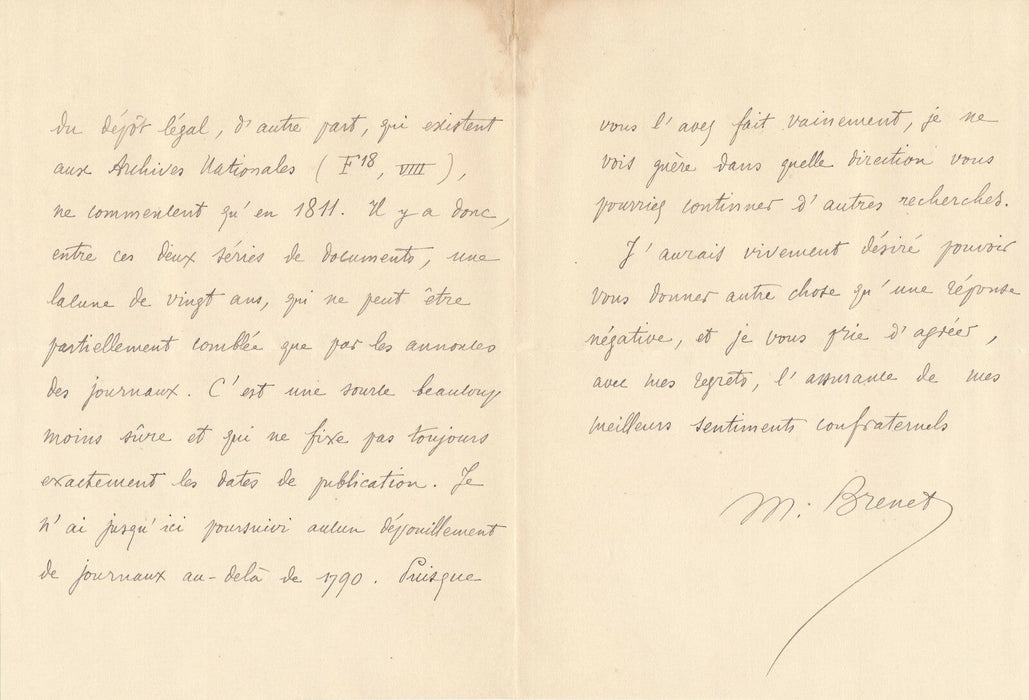 du dépôt légal, d'autre part, qui existent
aux Archives Nationales (F18, VIII),
ne commencent qu'en 1811. Il y a donc,
entre ces deux séries de documents, une
lacune de vingt ans, qui ne peut être
partiellement comblée que par les annonces
des journaux. C'est une source beaucoup
moins sûre et qui ne fixe pas toujours
exactement les dates de publication. Je
n'ai jusqu'ici poursuivi aucun dépouillement
de journaux au-delà de 1790. Puisque
vous l'avez fait vainement, je ne
vois guère dans quelle direction vous
pourriez continuer d'autres recherches.
J'aurais vivement désiré pouvoir
vous donner autre chose qu'une réponse
négative, et je vous prie d'agréer,
avec mes regrets, l'assurance de mes
meilleurs sentiments confraternels
M. Brenet